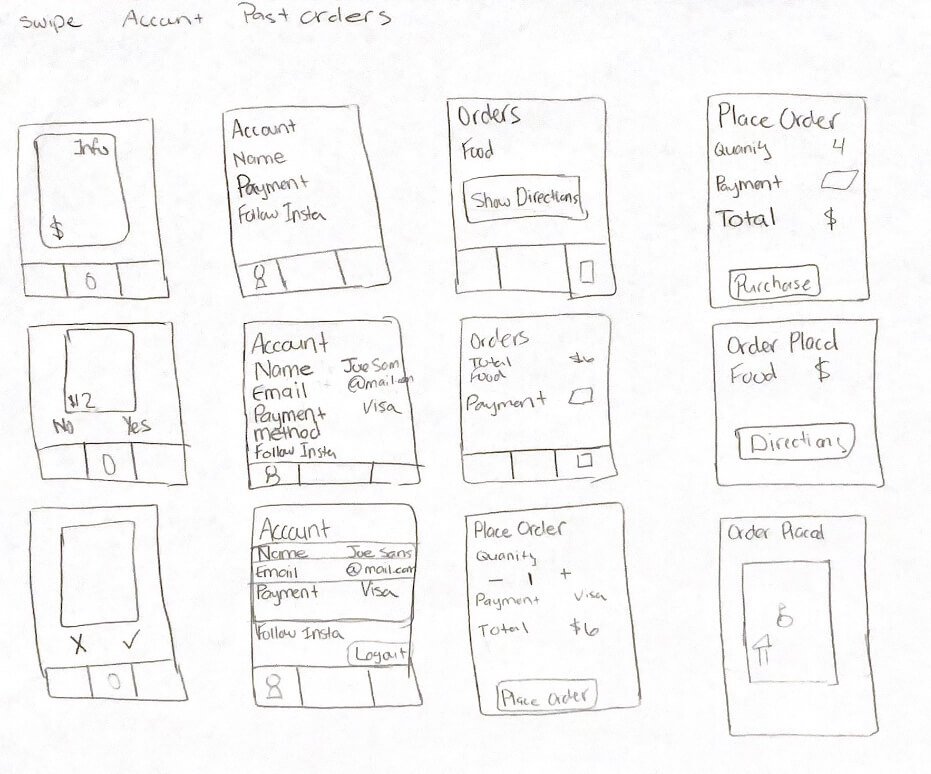 Swipe Account Past Orders
Info
$
Account
Name
Payment
Follow Insta
Orders
Food
Show Directions
Place Order
Quanity 4
Payment
Total $
Purchase
$12
No Yes
Account
Name Joe Sans
Email @mail.com
Payment Visa
method
Follow Insta
Orders
Total $6
Food
Payment
Order Placd
Food $
Directions
X ✓
Account
Name Joe Sans
Email @mail.com
Payment Visa
Follow Insta
Logout
Place Order
Quanity
- 1 +
Payment Visa
Total $6
Place Order
Order Placd